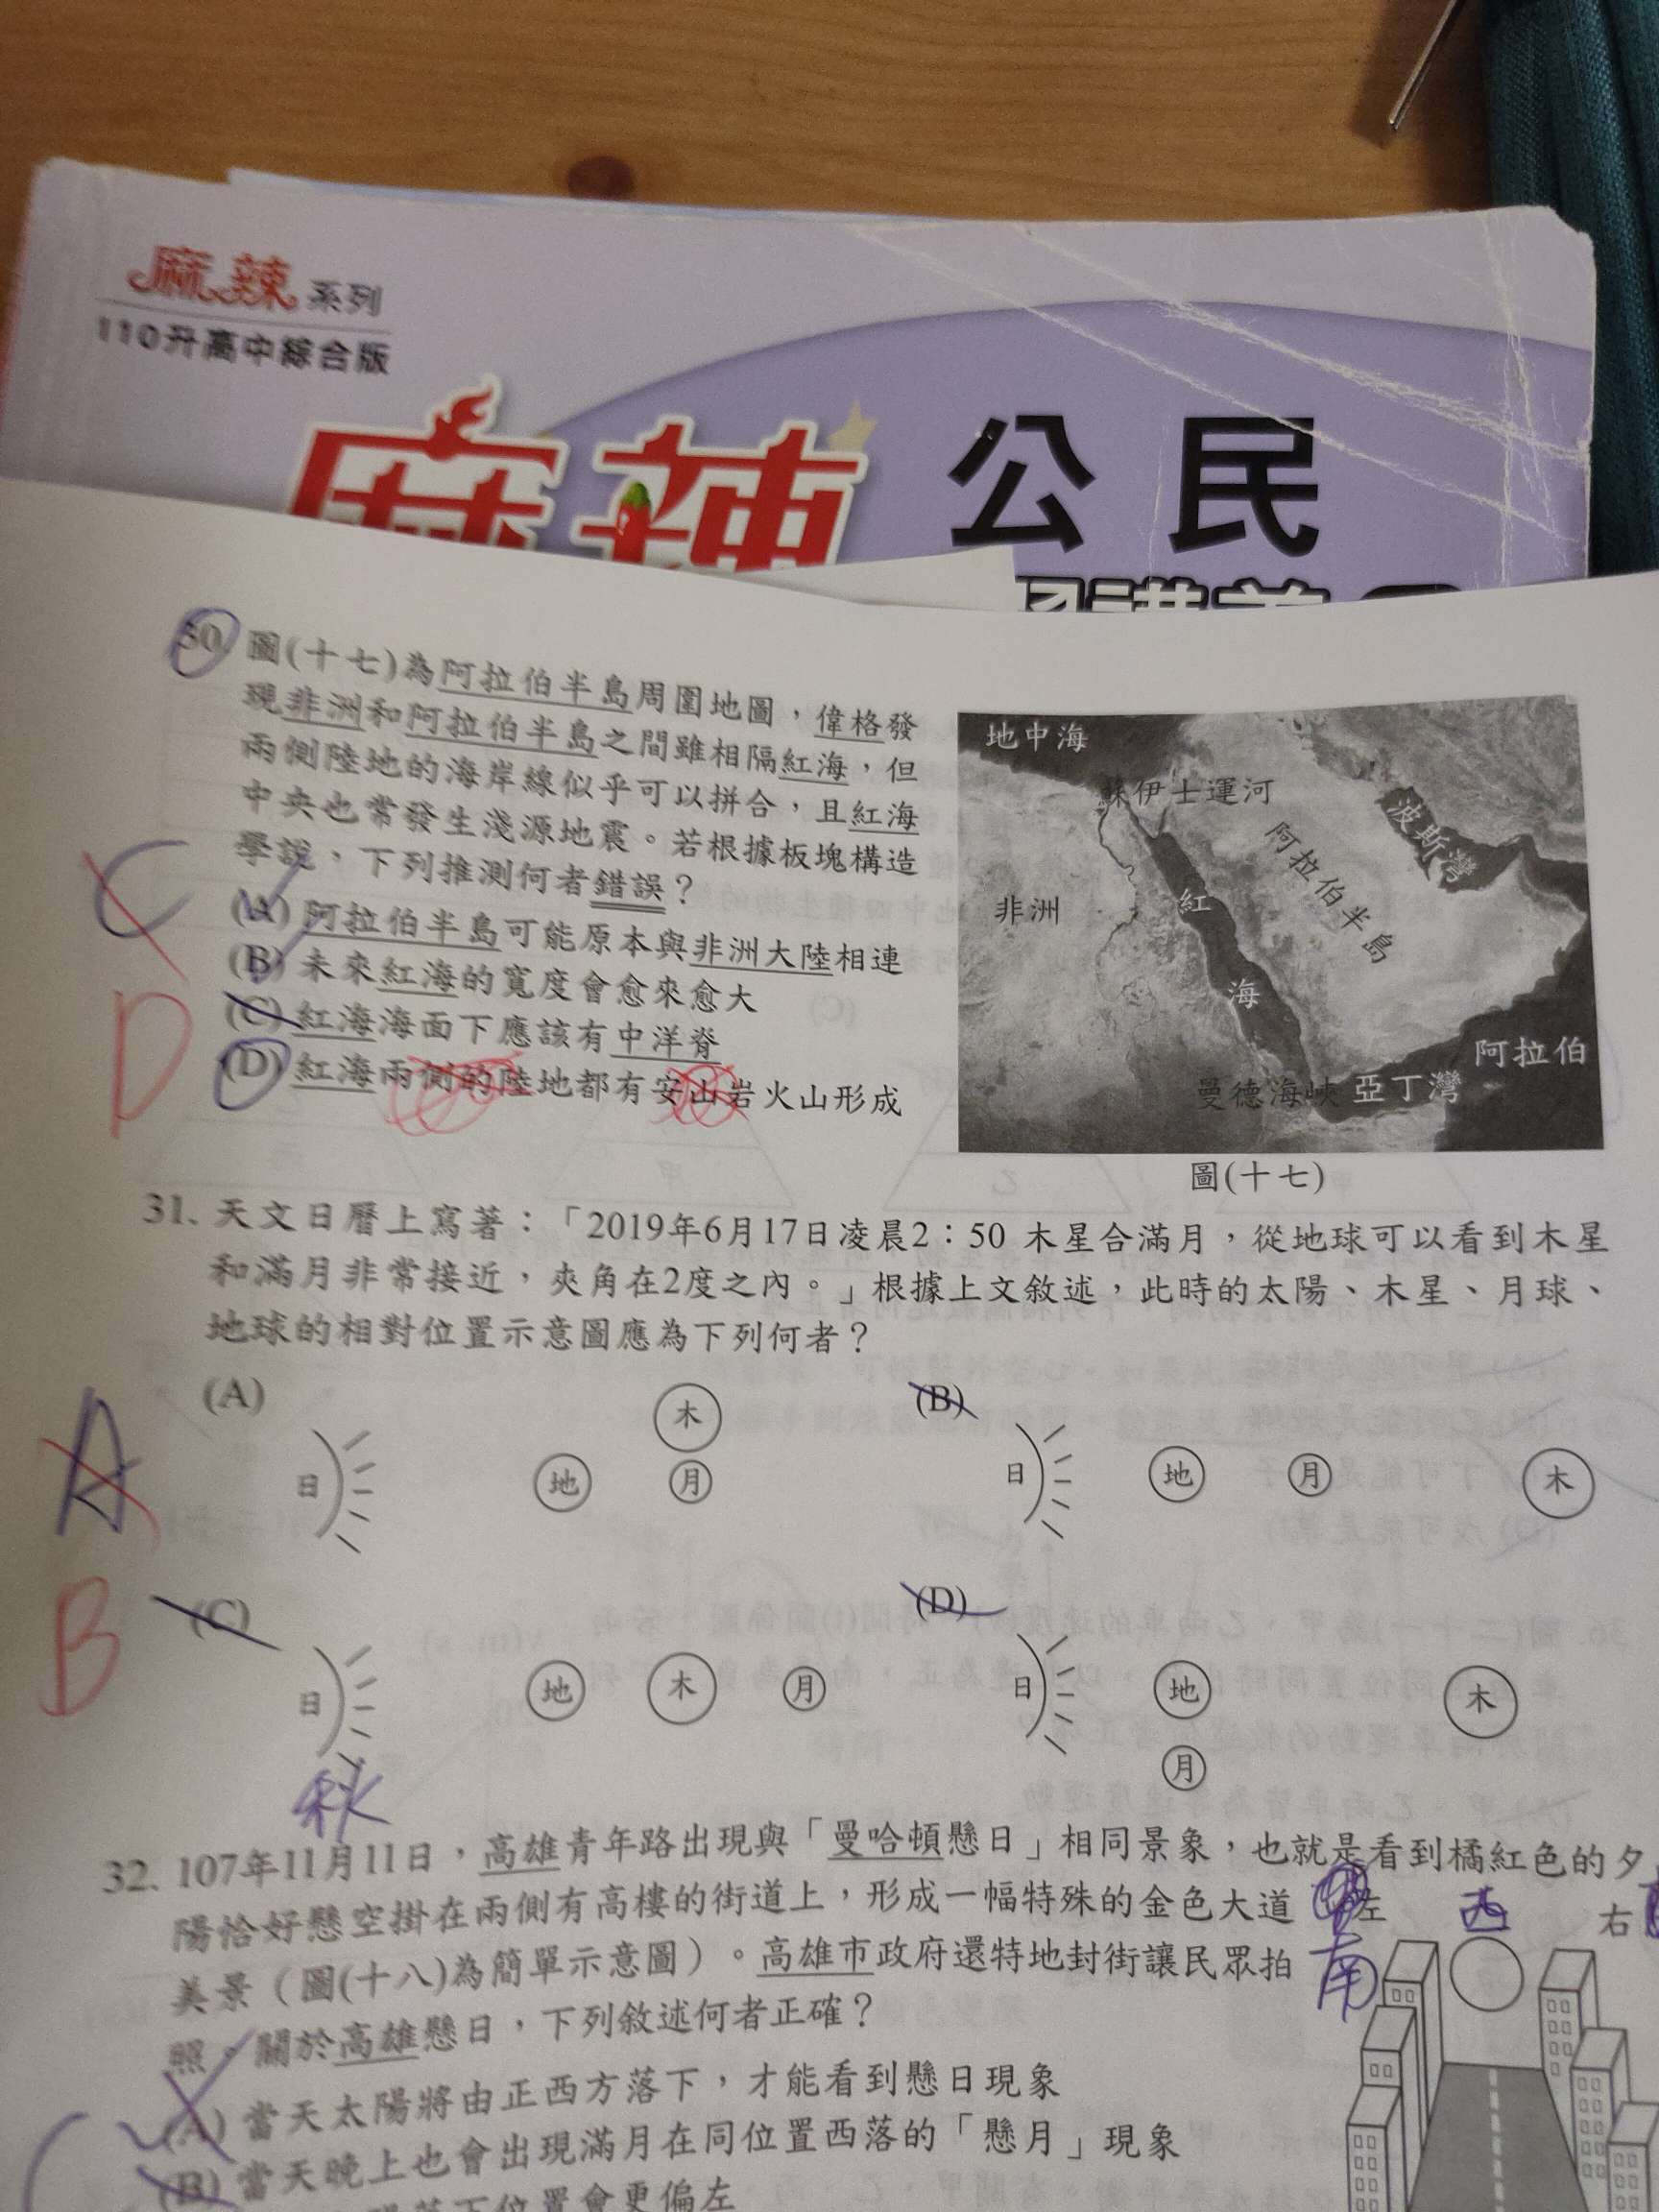 麻辣系列
110升高中綜合版
麻辣 公民
30. 圖(十七)為阿拉伯半島周圍地圖，偉格發
現非洲和阿拉伯半島之間雖相隔紅海，但
兩側陸地的海岸線似乎可以拼合，且紅海
中央也常發生淺源地震。若根據板塊構造
學說，下列推測何者錯誤？
(A) 阿拉伯半島可能原本與非洲大陸相連
(B) 未來紅海的寬度會愈來愈大
(C) 紅海海面下應該有中洋脊
(D) 紅海兩側的陸地都有安山岩火山形成
C
D
地中海
蘇伊士運河
波斯灣
阿拉伯半島
非洲
紅海
阿拉伯
曼德海峽 亞丁灣
圖(十七)
31. 天文日曆上寫著：「2019年6月17日凌晨2：50 木星合滿月，從地球可以看到木星
和滿月非常接近，夾角在2度之內。」根據上文敘述，此時的太陽、木星、月球、
地球的相對位置示意圖應為下列何者？
A
B
(A)
木
日 地 月
(B)
日 地 月 木
(C)
日 地 木 月
(D)
日 地 木
月
秋
32. 107年11月11日，高雄青年路出現與「曼哈頓懸日」相同景象，也就是看到橘紅色的夕
陽恰好懸空掛在兩側有高樓的街道上，形成一幅特殊的金色大道
美景（圖(十八)為簡單示意圖）。高雄市政府還特地封街讓民眾拍
照。關於高雄懸日，下列敘述何者正確？
左 西 右
南
(A) 當天太陽將由正西方落下，才能看到懸日現象
(B) 當天晚上也會出現滿月在同位置西落的「懸月」現象
落下位置會更偏左